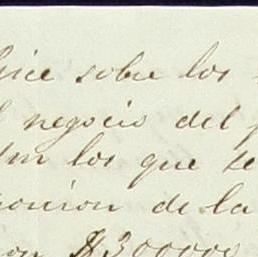 hice sobre los
l negocio del
los que se
osicion de la
on $300000